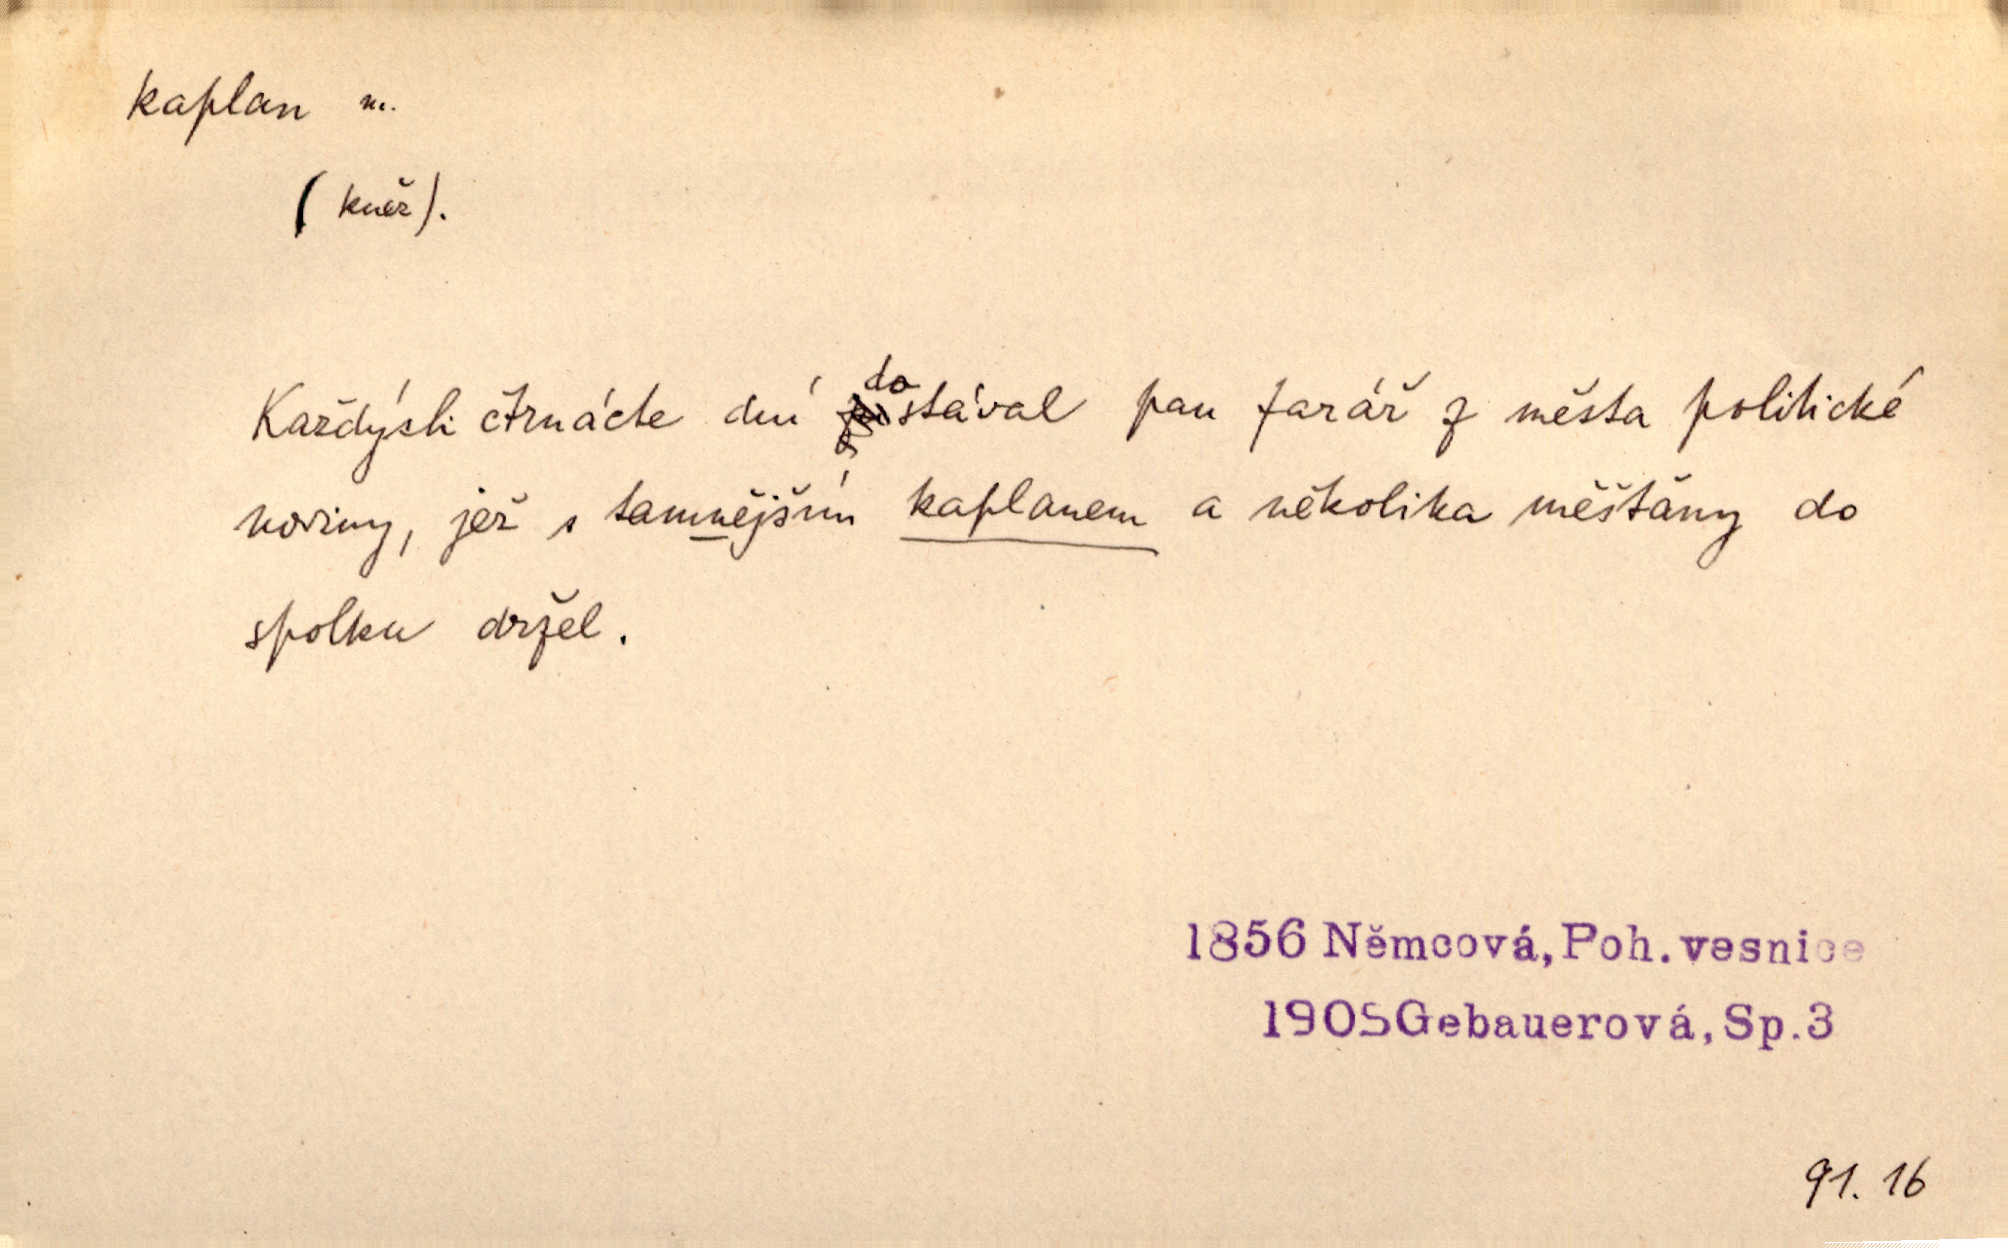 kaplan m.
(kněz).
Každých čtrnácte dní dostával pan farář z města politické
noviny, jež s tamnějším kaplanem a několika měšťany do
spolku držel.
1856 Němcová, Poh. vesnice
1905 Gebauerová, Sp.3
91. 16